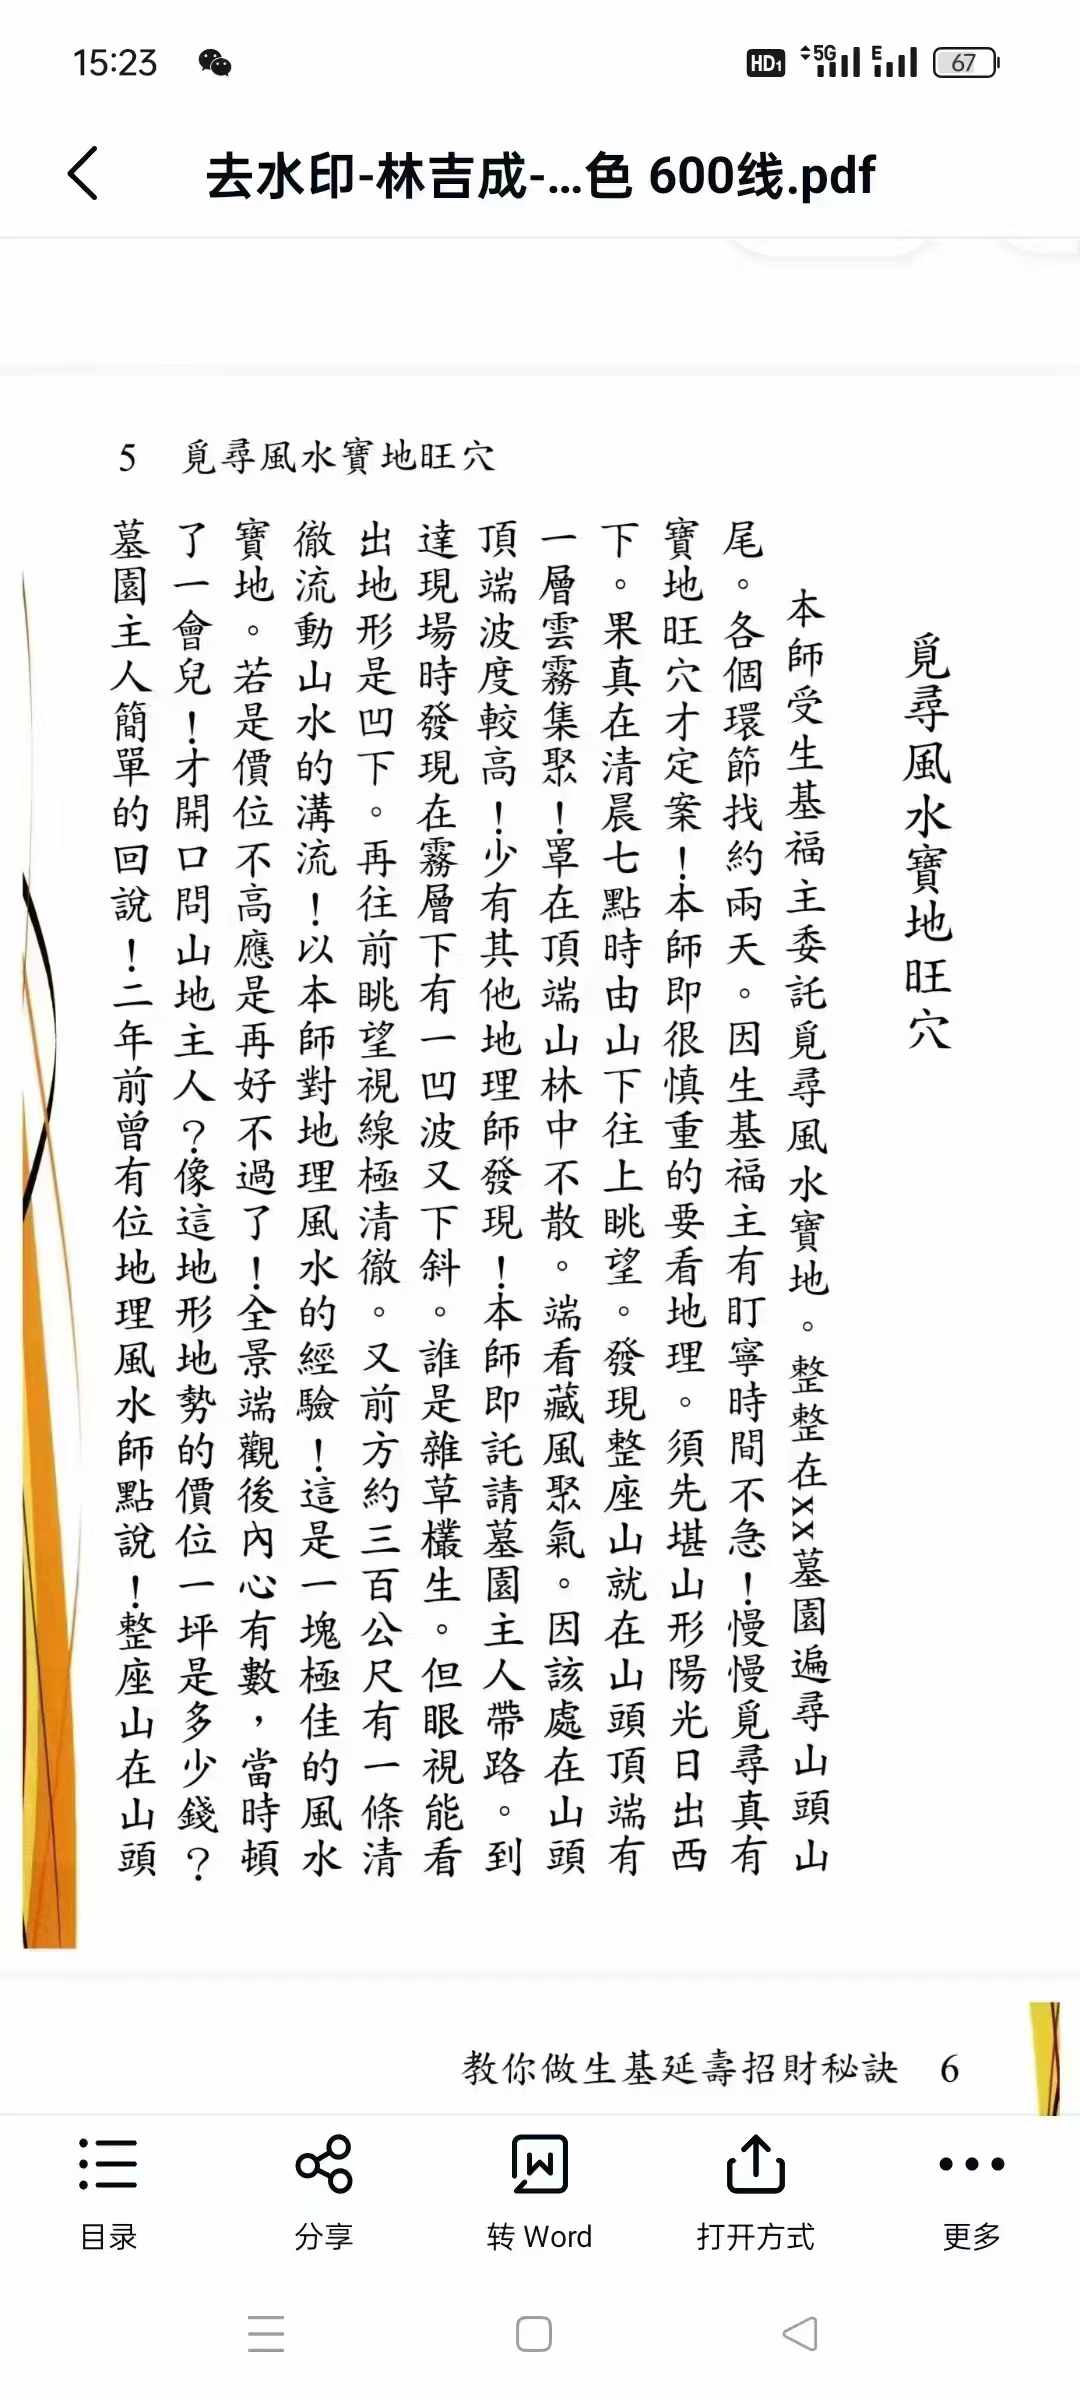 15:23 HD1 5G E 67
去水印-林吉成-...色 600线.pdf
5 覓尋風水寶地旺穴
覓尋風水寶地旺穴
本師受生基福主委託覓尋風水寶地。整整在xx墓園遍尋山頭山
尾。各個環節找約兩天。因生基福主有盯寧時間不急！慢慢覓尋真有
寶地旺穴才定案！本師即很慎重的要看地理。須先堪山形陽光日出西
下。果真在清晨七點時由山下往上眺望。發現整座山就在山頭頂端有
一層雲霧集聚！罩在頂端山林中不散。端看藏風聚氣。因該處在山頭
頂端波度較高！少有其他地理師發現！本師即託請墓園主人帶路。到
達現場時發現在霧層下有一凹波又下斜。誰是雜草欉生。但眼視能看
出地形是凹下。再往前眺望視線極清徹。又前方約三百公尺有一條清
徹流動山水的溝流！以本師對地理風水的經驗！這是一塊極佳的風水
寶地。若是價位不高應是再好不過了！全景端觀後內心有數，當時頓
了一會兒！才開口問山地主人？像這地形地勢的價位一坪是多少錢？
墓園主人簡單的回說！二年前曾有位地理風水師點說！整座山在山頭
教你做生基延壽招財秘訣 6
目录 分享 转 Word 打开方式 更多